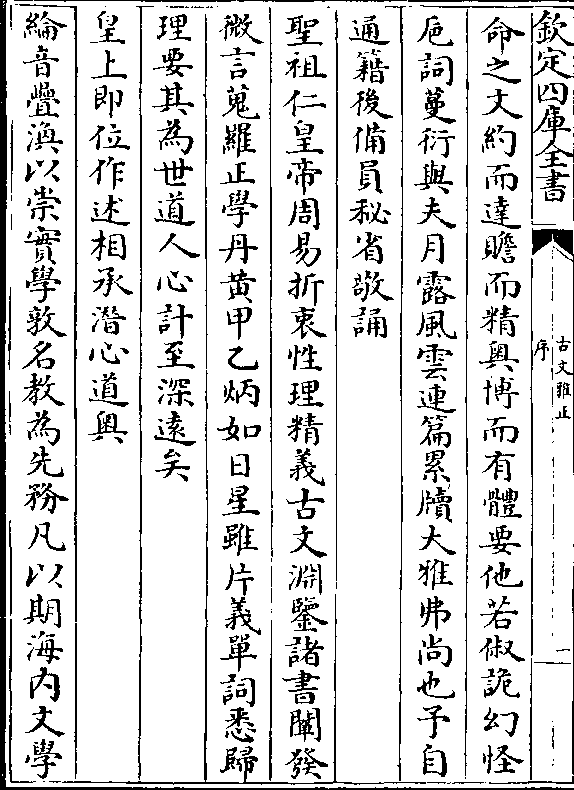 欽定四庫全書
古文雅正
序
一
命之文約而達贍而精奧博而有體要他若俶詭幻怪
巵詞蔓衍與夫月露風雲連篇累牘大雅弗尚也予自
通籍後備員秘省敬誦
聖祖仁皇帝周易折衷性理精義古文淵鑒諸書闡發
微言蒐羅正學丹黄甲乙炳如日星雖片義單詞悉歸
理要其為世道人心計至深逺矣
皇上即位作述相承潛心道奥
綸音疊渙以崇實學敦名教為先務凡以期海内文學